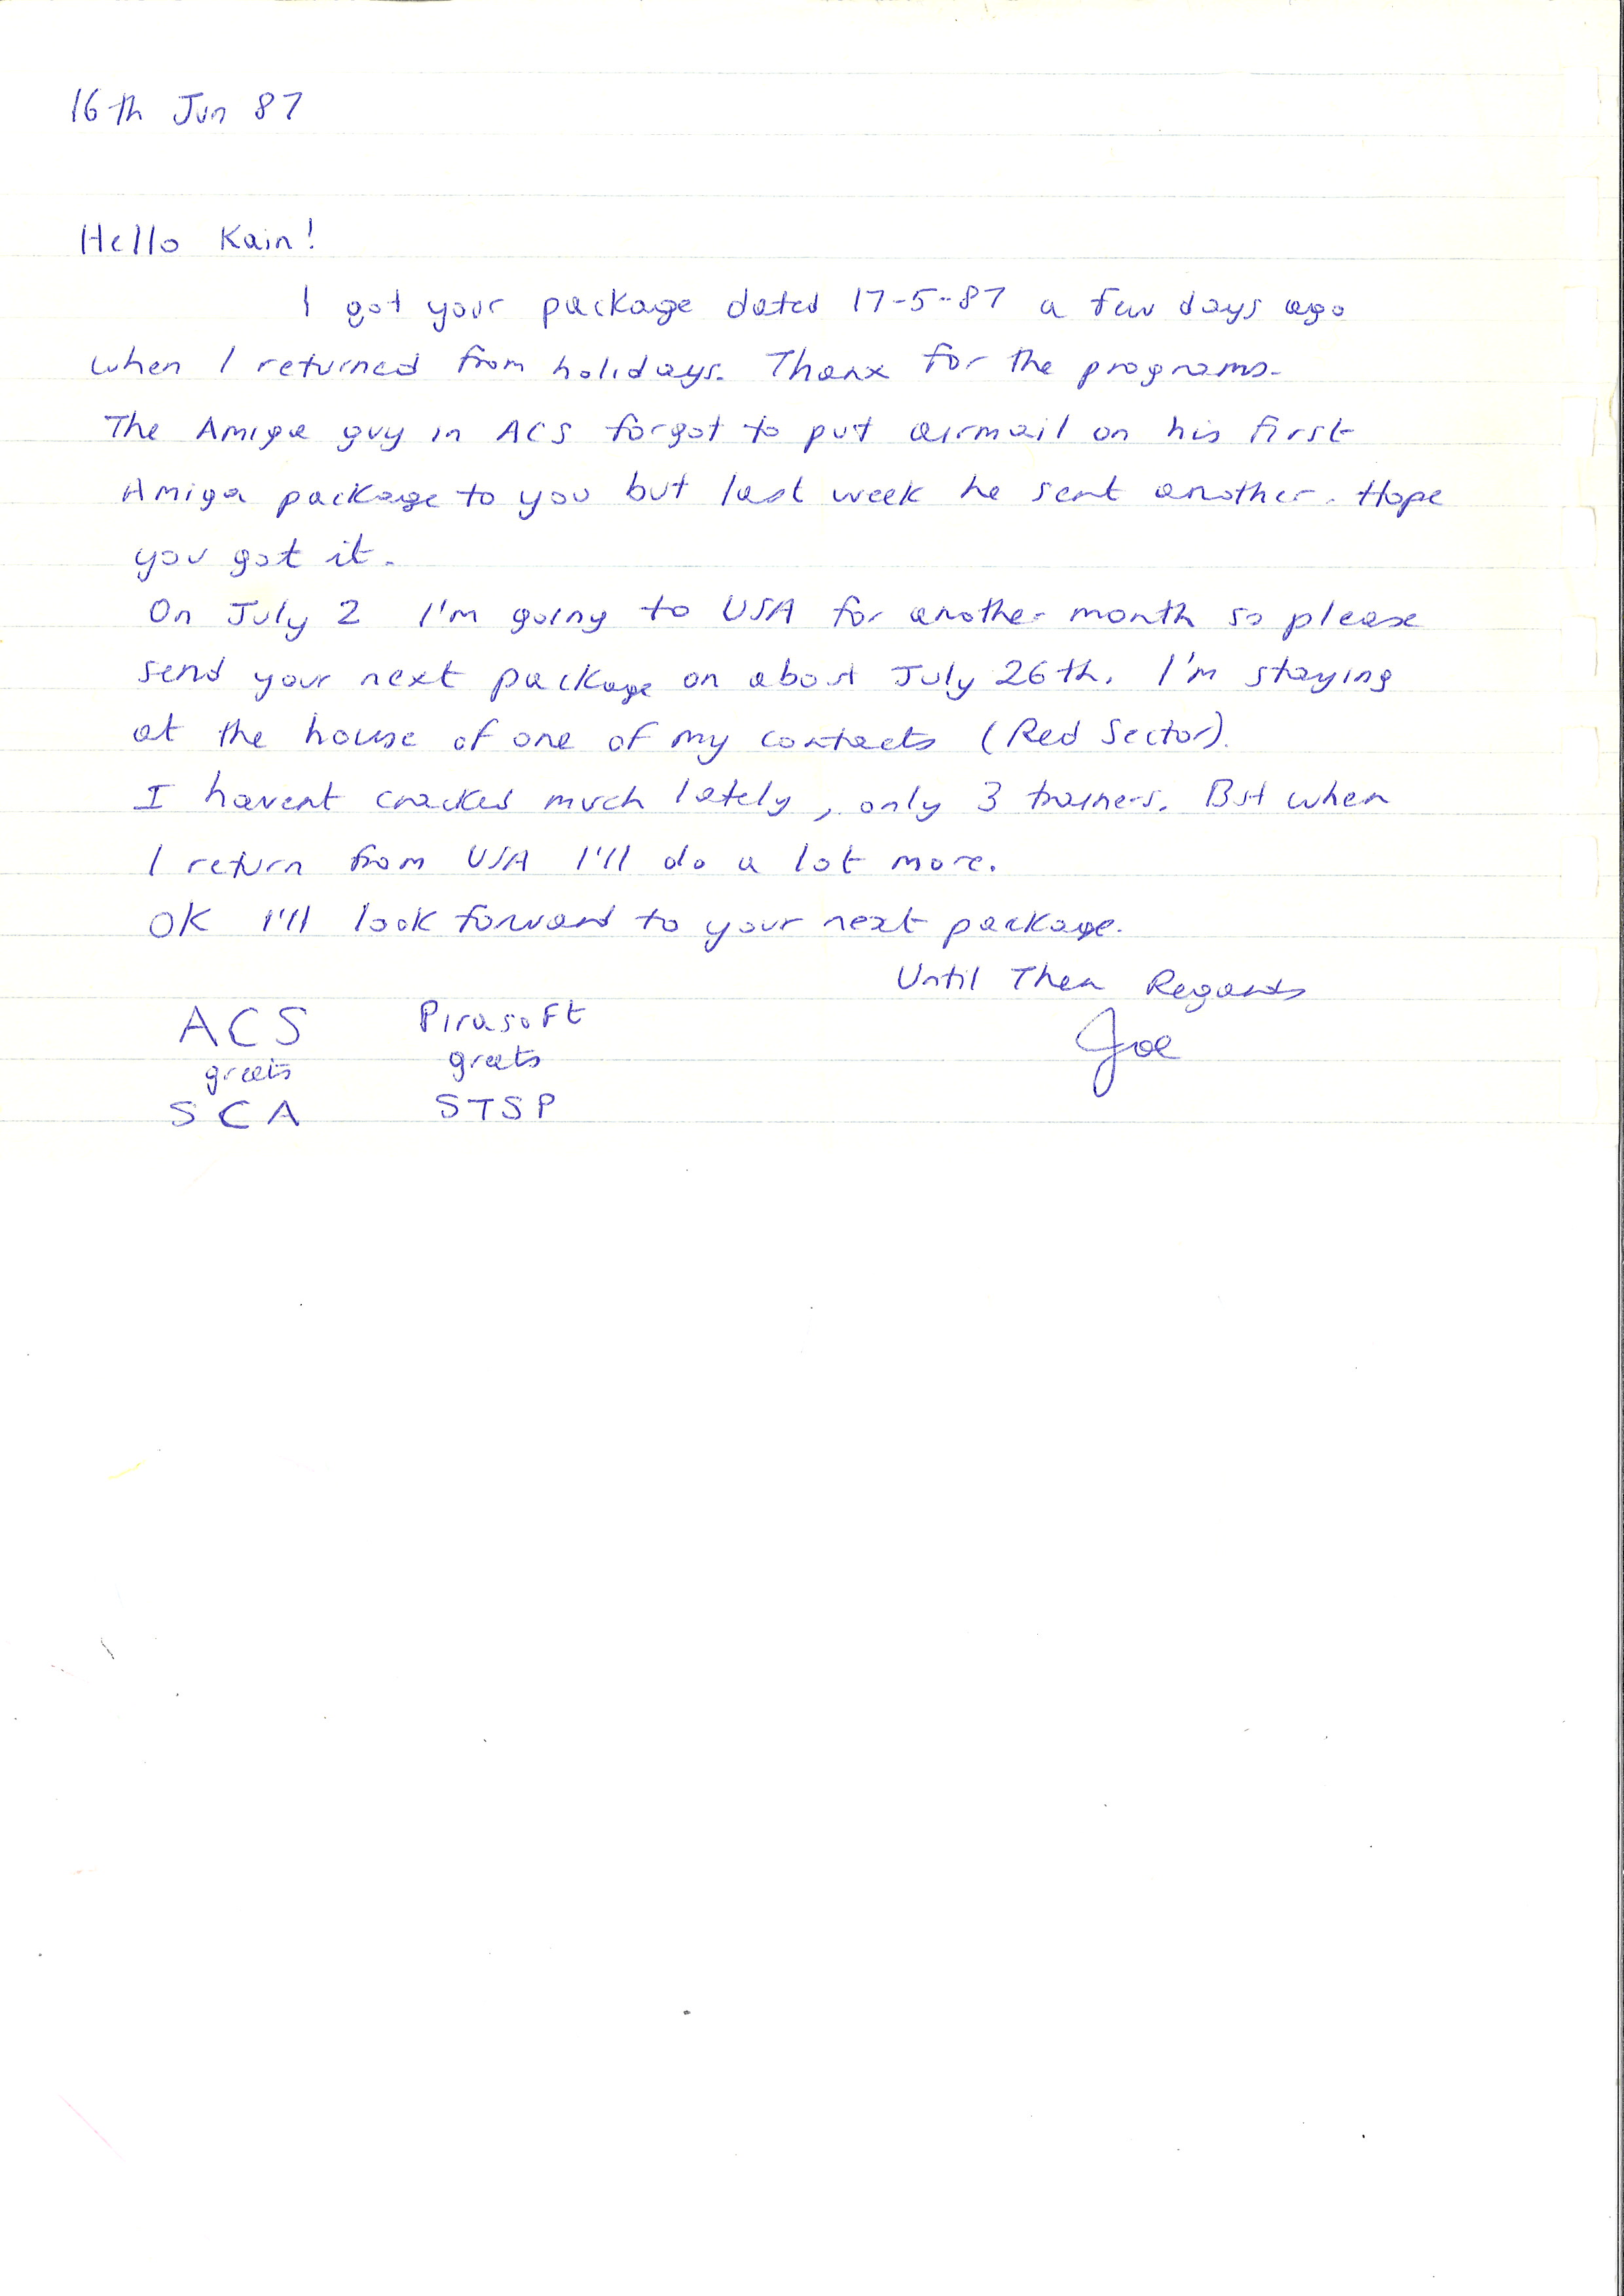 16th Jun 87
Hello Kain!
I got your package dated 17-5-87 a few days ago
when I returned from holidays. Thanx for the programs.
The Amiga guy in ACS forgot to put airmail on his first
Amiga package to you but last week he sent another. Hope
you got it.
On July 2 I'm going to USA for another month so please
send your next package on about July 26th. I'm staying
at the house of one of my contacts (Red Sector).
I havent cracked much lately, only 3 trainers. But when
I return from USA I'll do a lot more.
OK I'll look forward to your next package.
Until Then Regards
Joe
ACS
greets
SCA
Pirasoft
greets
STSP